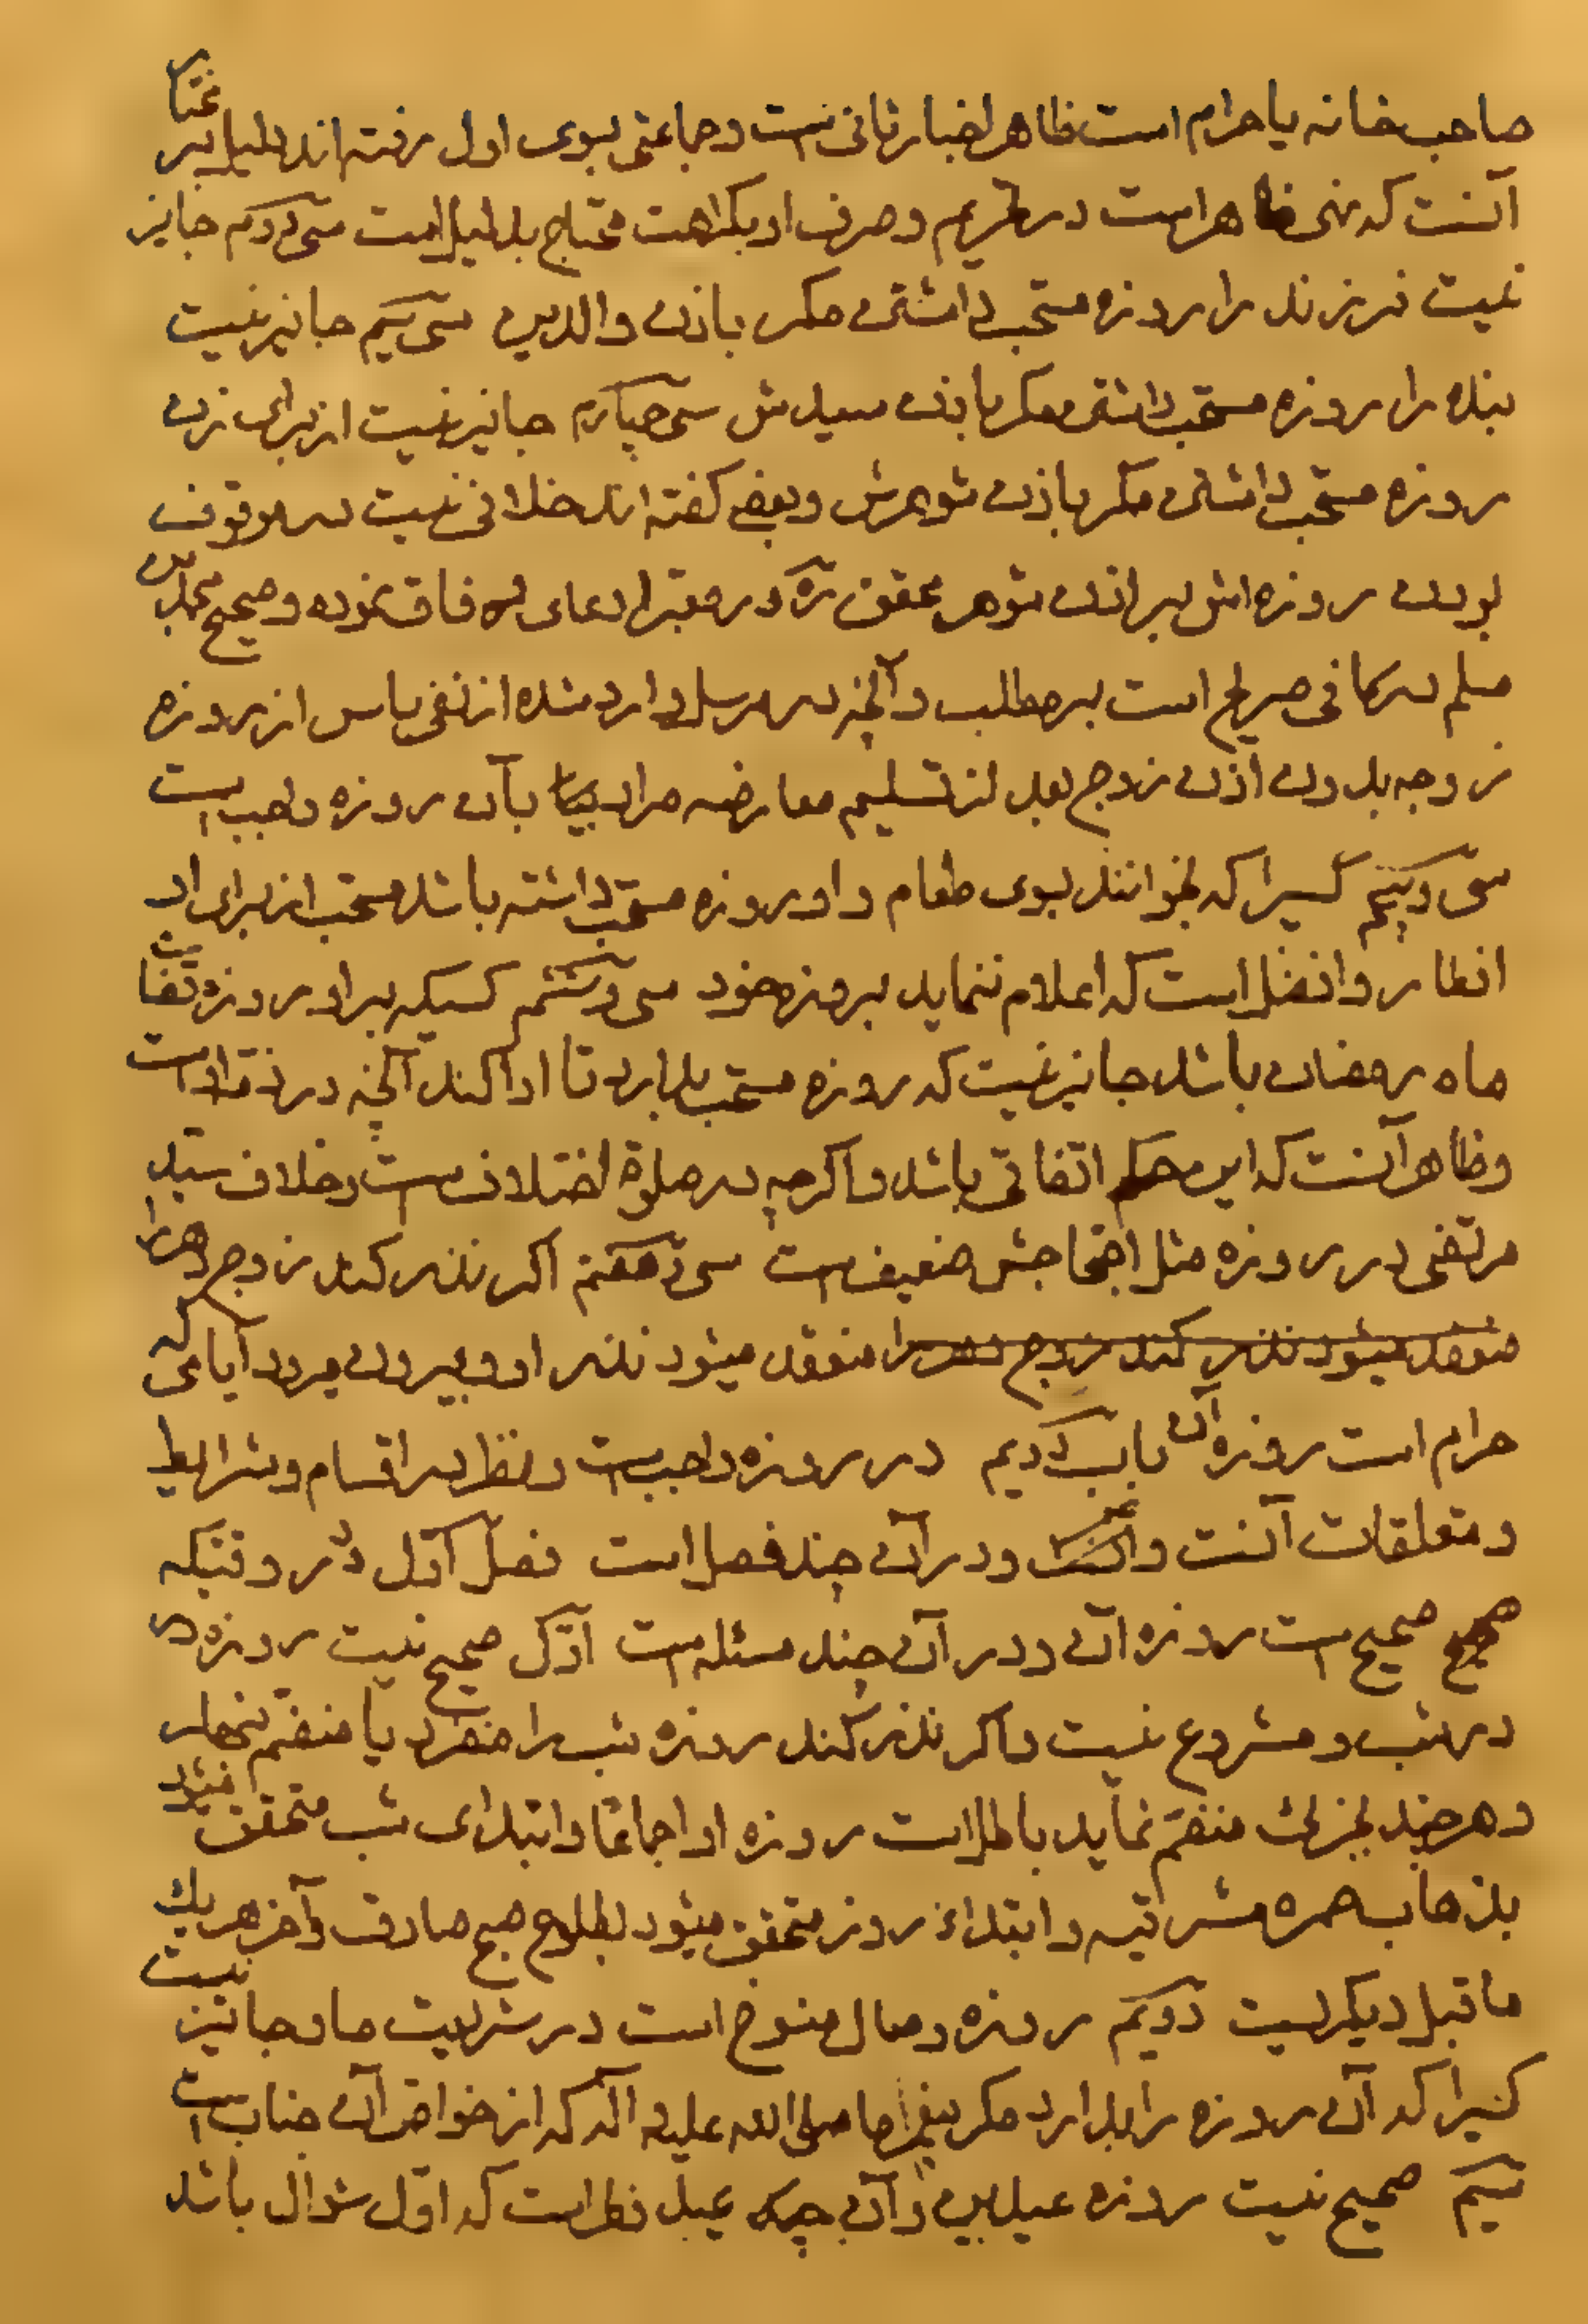 صاحب خانه یا حرام است ظاهر اخبار ثانی است و جماعتی بسوی اول رفته اند دلیل بر مختار
آنست که نهی ظاهر است در تحریم و صرف او بکراهت محتاج بدلیل است سی و دویم جایز
نیست فرزند را روزه مستحب داشتن مکر باذن والدین سی سیم جایز نیست
بنده را روزه مستحب داشتن مکر باذن سیدش سی چهارم جایز نیست از برای زن
روزه مستحب داشتن مکر باذن شوهرش و بعضی کفته اند خلافی نیست در موقوف
بودن روزه اش بر اذن شوهر محقق ره در معتبر ادعای وفاق نموده و صحیح محمد بن
مسلم در کافی صریح است بر مطلب و آنچه در مرسل وارد شده از نفی باس از روزه
زوجه بدون اذن زوج بعد از تسلیم معارضه مراد بآن روزه واجب است
سی و پنجم کسیرا که بخوانند بسوی طعام و او روزه مستحب داشته باشد مستحب از برای او
افطار و افضل است که اعلام ننماید بروزه خود سی و ششم کسیکه بر او روزه قضاء
ماه رمضان باشد جایز نیست که روزه مستحب بدارد تا ادا کند آنچه در ذمه او است
و ظاهر آنست که این حکم اتفاقی باشد و اکرچه در صلوة اختلاف است و خلاف سید
مرتضی در روزه مثل احتجاجش ضعیف است سی و هفتم اکر نذر کند زوج دهر را
منعقد میشود نذر کند زوج دهر را منعقد میشود نذر او و بیرون میرود آیامی که
حرام است روزه آن باب دویم در روزه واجب است و نظر در اقسام و شرایط
و متعلقات آنست و در آن چند فصل است فصل اول در وقتیکه
صحیح صحیح است روزه آن و در آن چند مسئله است اول صحیح نیست روزه در
در شب و مشروع نیست و اکر نذر کند روزه شب را منفرد یا منضم بنهار
و هرچند بجزئی منضم نماید باطل است روزه او اجماعا و ابتدای شب متحقق میشود
بذهاب حمره مشرقیه و ابتداء روز متحقق میشود بطلوع صبح صادق و آخر هر یک
ما قبل دیکریست دویم روزه وصال منسوخ است در شریعت ما و جایز نیست
کسیرا که آن روزه را بدارد مکر پیغمبر ما صلی الله علیه و آله که از خواص آن جناب است
سیم صحیح نیست روزه عیدین و آن چه که عید فطر است که اول شوال باشد